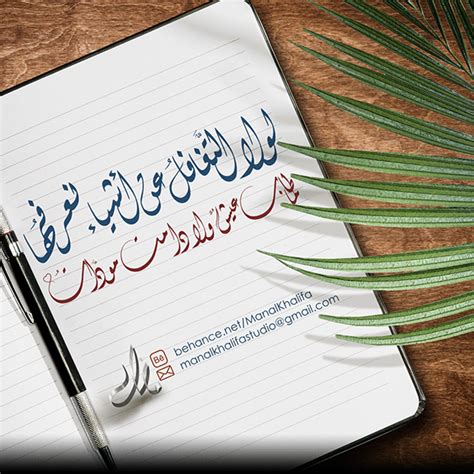 لولا التَّغافل عن أشياء نعرفها
طاب عيش ولا دامت مودات
behance.net/ManalKhalifa
manalkhalifastudio@gmail.com